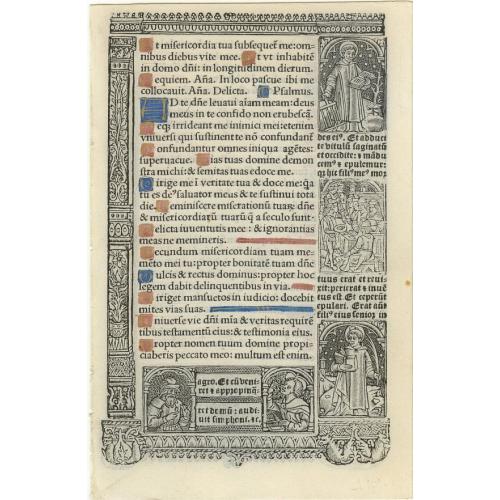 Et misericordia tua subsequet me: om-
nibus diebus vite mee. Et vt inhabitē
in domo dn̄i: in longitudinem dierum.
Requiem. Aña. In loco pascue ibi me
collocauit. Aña. Delicta. Psalmus.
AD te dn̄e leuaui aīam meam: deus
meus in te confido non erubescā.
Neqȝ irrideant me inimici mei: etenim
vniuersi qui sustinent te nō confundant̄
Confundantur omnes iniqua agētes:
superuacue. Vias tuas domine demon
stra michi: & semitas tuas edoce me.
Dirige me ī veritate tua & doce me: q̄a
tu es de⁹ saluator meus & te sustinui tota
die. Reminiscere miserationū tuarȝ dn̄e
& misericordiaȝ tuarū q̄ a seculo sunt.
Delicta iuuentutis mee: & ignorantias
meas ne memineris.
Secundum misericordiam tuam me-
mēto mei tu: propter bonitatē tuam dn̄e
Dulcis & rectus dominus: propter hoc
legem dabit delinquentibus in via.
Diriget mansuetos in iudicio: docebit
mites vias suas.
Vniuerse vie dn̄i mīa & veritas requirē
tibus testamentū eius: & testimonia eius.
Propter nomen tuum domine propi-
ciaberis peccato meo: multum est enim.
des ei⁹. Et adducite
vitulū saginatū
et occidite: ⁊ mādu
cem⁹ ⁊ epulemur:
q̄ hic fili⁹ me⁹ mor
tuus erat et reui-
xit: perierat ⁊ inuē
tus est. Et ceperūt
epulari. Erat aūt
fili⁹ eius senior in
agro. Et cū veni-
ret ⁊ appropinq̄-
ret domū: audi-
uit simphoni. ⁊c.